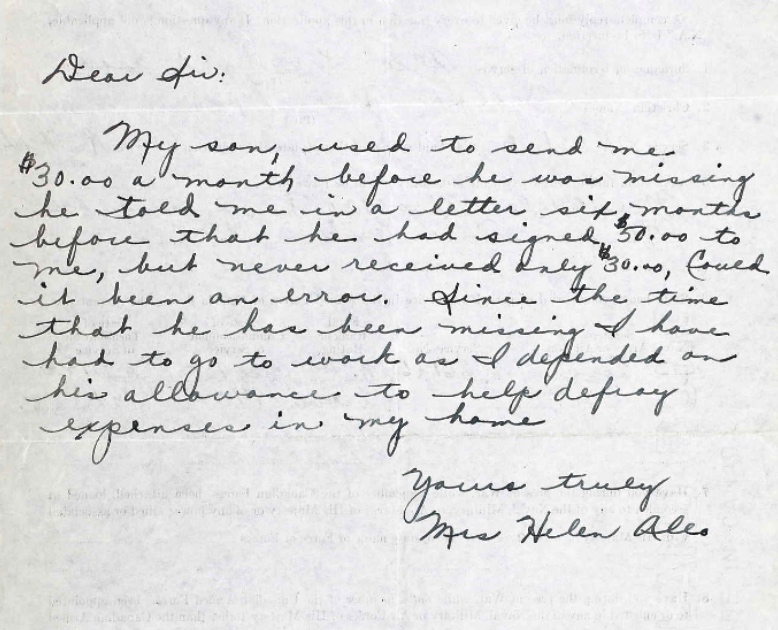 Dear Sir:
My son, used to send me
$30.00 a month before he was missing
he told me in a letter six months
before that he had signed $50.00 to
me, but never received only $30.00, Could
it been an error. Since the time
that he has been missing I have
had to go to work as I depended on
his allowance to help defray
expenses in my home
Yours truly
Mrs Helen Aleo